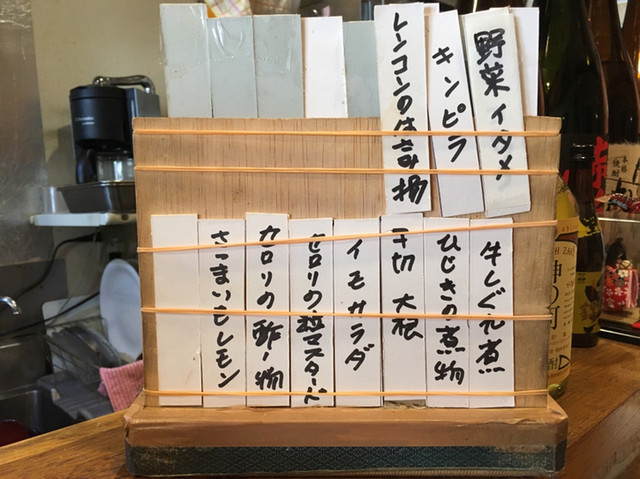 野菜イタメ
キンピラ
レンコンのはさみ物
牛しぐれ煮
ひじきの煮物
千切大根
イモサラダ
セロリの粒マスタード
セロリの酢ノ物
さつまいもレモン